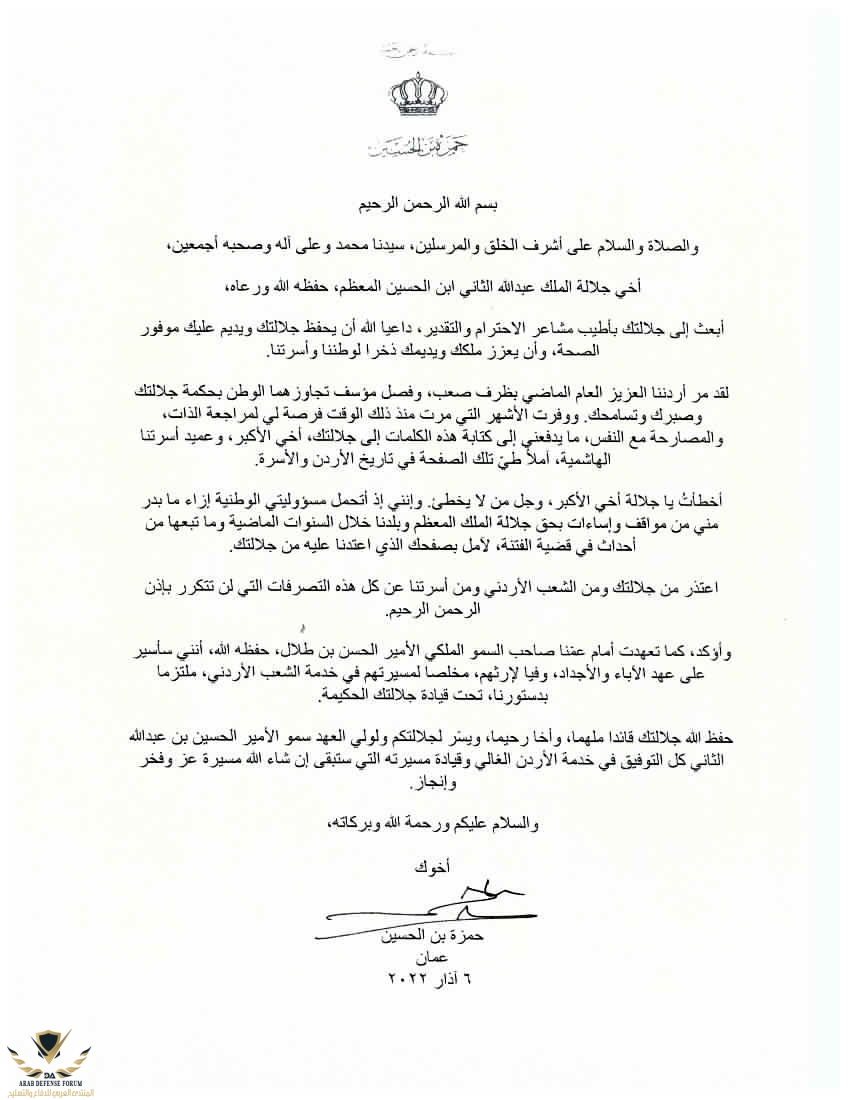 حمزة بن الحسين
بسم الله الرحمن الرحيم
والصلاة والسلام على أشرف الخلق والمرسلين، سيدنا محمد وعلى آله وصحبه أجمعين،
أخي جلالة الملك عبدالله الثاني ابن الحسين المعظم، حفظه الله ورعاه،
أبعث إلى جلالتك بأطيب مشاعر الاحترام والتقدير، داعيا الله أن يحفظ جلالتك ويديم عليك موفور
الصحة، وأن يعزز ملكك ويديمك ذخرا لوطننا وأسرتنا.
لقد مر أردننا العزيز العام الماضي بظرف صعب، وفصل مؤسف تجاوزهما الوطن بحكمة جلالتك
وصبرك وتسامحك. ووفرت الأشهر التي مرت منذ ذلك الوقت فرصة لي لمراجعة الذات،
والمصارحة مع النفس، ما يدفعني إلى كتابة هذه الكلمات إلى جلالتك، أخي الأكبر، وعميد أسرتنا
الهاشمية، آملاً طيّ تلك الصفحة في تاريخ الأردن والأسرة.
أخطأتُ يا جلالة أخي الأكبر، وجل من لا يخطئ. وإنني إذ أتحمل مسؤوليتي الوطنية إزاء ما بدر
مني من مواقف وإساءات بحق جلالة الملك المعظم وبلدنا خلال السنوات الماضية وما تبعها من
أحداث في قضية الفتنة، لآمل بصفحك الذي اعتدنا عليه من جلالتك.
اعتذر من جلالتك ومن الشعب الأردني ومن أسرتنا عن كل هذه التصرفات التي لن تتكرر بإذن
الرحمن الرحيم.
وأؤكد، كما تعهدت أمام عمّنا صاحب السمو الملكي الأمير الحسن بن طلال، حفظه الله، أنني سأسير
على عهد الآباء والأجداد، وفيا لإرثهم، مخلصاً لمسيرتهم في خدمة الشعب الأردني، ملتزما
بدستورنا، تحت قيادة جلالتك الحكيمة.
حفظ الله جلالتك قائدا ملهما، وأخا رحيما، ويسّر لجلالتكم ولولي العهد سمو الأمير الحسين بن عبدالله
الثاني كل التوفيق في خدمة الأردن الغالي وقيادة مسيرته التي ستبقى إن شاء الله مسيرة عز وفخر
وإنجاز.
والسلام عليكم ورحمة الله وبركاته،
أخوك
حمزة بن الحسين
عمان
٦ آذار ٢٠٢٢
DA
ARAB DEFENSE FORUM
المنتدى العربي للدفاع والتسليح